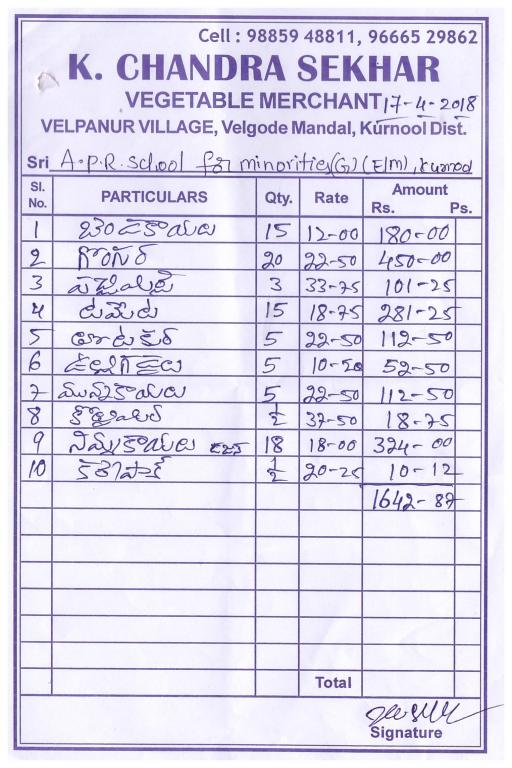 Cell : 98859 48811, 96665 29862
K. CHANDRA SEKHAR
VEGETABLE MERCHANT 17-4-2018
VELPANUR VILLAGE, Velgode Mandal, Kurnool Dist.
Sri A.P.R. School for minorities(G) (E/M), Kurnool
Sl. No. PARTICULARS Qty. Rate Amount Rs. Ps.
1 బెండకాయలు 15 12-00 180-00
2 గోంగూర 20 22-50 450-00
3 పచ్చిమిర్చి 3 33-75 101-25
4 టమోట 15 18-75 281-25
5 తోటకూర 5 22-50 112-50
6 ఉల్లిగడ్డలు 5 10-50 52-50
7 మునక్కాయలు 5 22-50 112-50
8 కొత్తిమీర 1/2 37-50 18-75
9 నిమ్మకాయలు డజన్ 18 18-00 324-00
10 కరేపాక్ 1/2 20-25 10-12
1642-87
Total
Signature